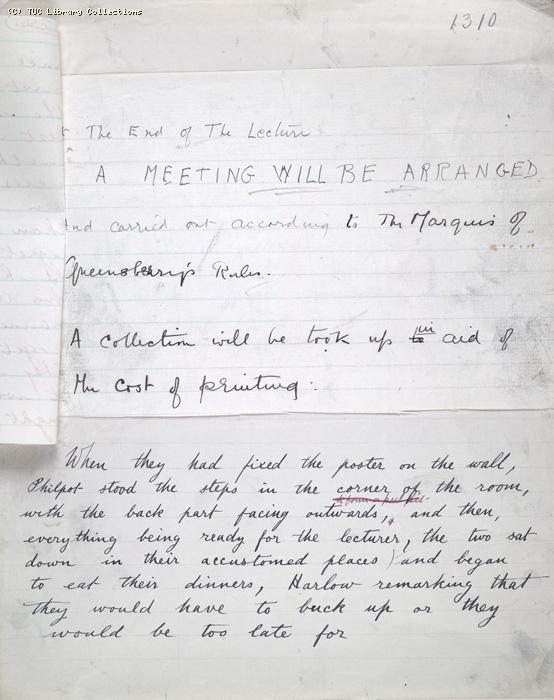 (C) TUC Library Collections
1310
t The End of The Lecture
A MEETING WILL BE ARRANGED
And carried out according to The Marquis of
Queensberry's Rules.
A collection will be took up in aid of
the cost of printing:
When they had fixed the poster on the wall,
Philpot stood the steps in the corner of the room,
with the back part facing outwards, and then,
everything being ready for the lecturer, the two sat
down in their accustomed places) and began
to eat their dinners, Harlow remarking that
they would have to buck up or they
would be too late for